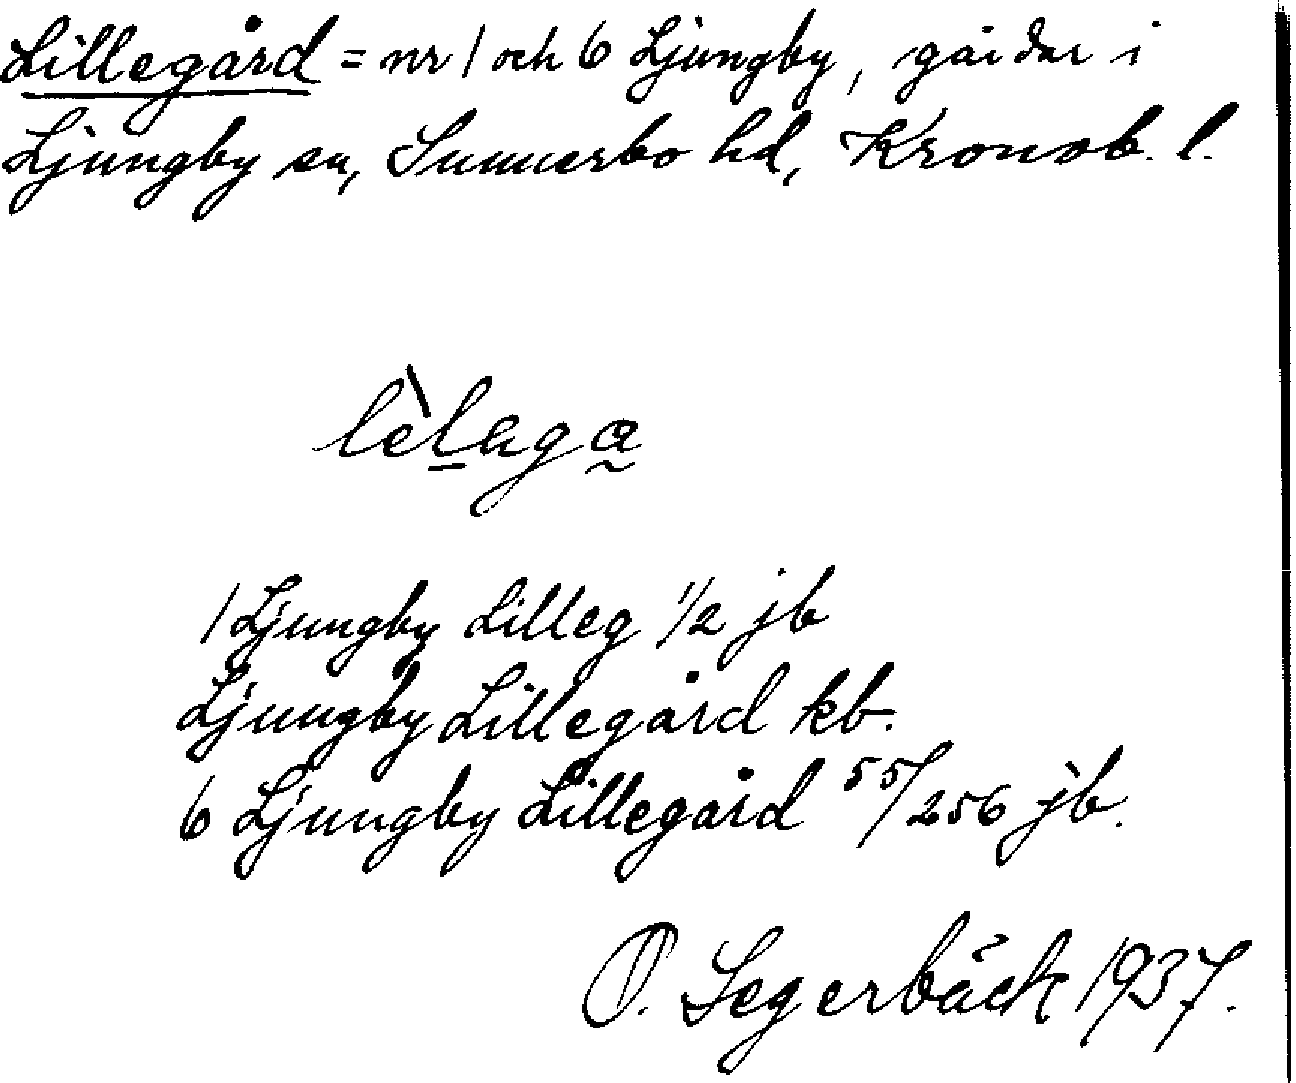 Lillegård = nr 1 och 6 Ljungby, gårdar i
Ljungby sn, Sunnerbo hd, Kronob. l.
lèlaga
1 Ljungby Lilleg 1/2 jb
Ljungby Lillegård kb.
6 Ljungby Lillegård 55/256 jb.
O. Segerbäck 1937.